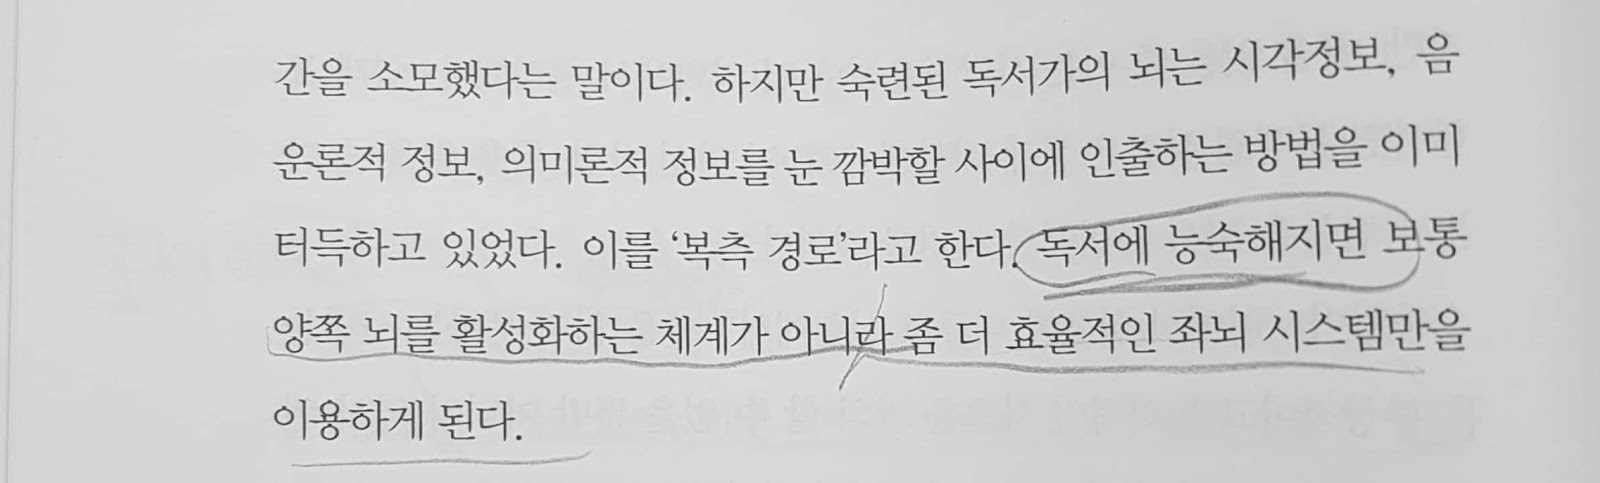 간을 소모했다는 말이다. 하지만 숙련된 독서가의 뇌는 시각정보, 음
운론적 정보, 의미론적 정보를 눈 깜박할 사이에 인출하는 방법을 이미
터득하고 있었다. 이를 ‘복측 경로’라고 한다. 독서에 능숙해지면 보통
양쪽 뇌를 활성화하는 체계가 아니라 좀 더 효율적인 좌뇌 시스템만을
이용하게 된다.